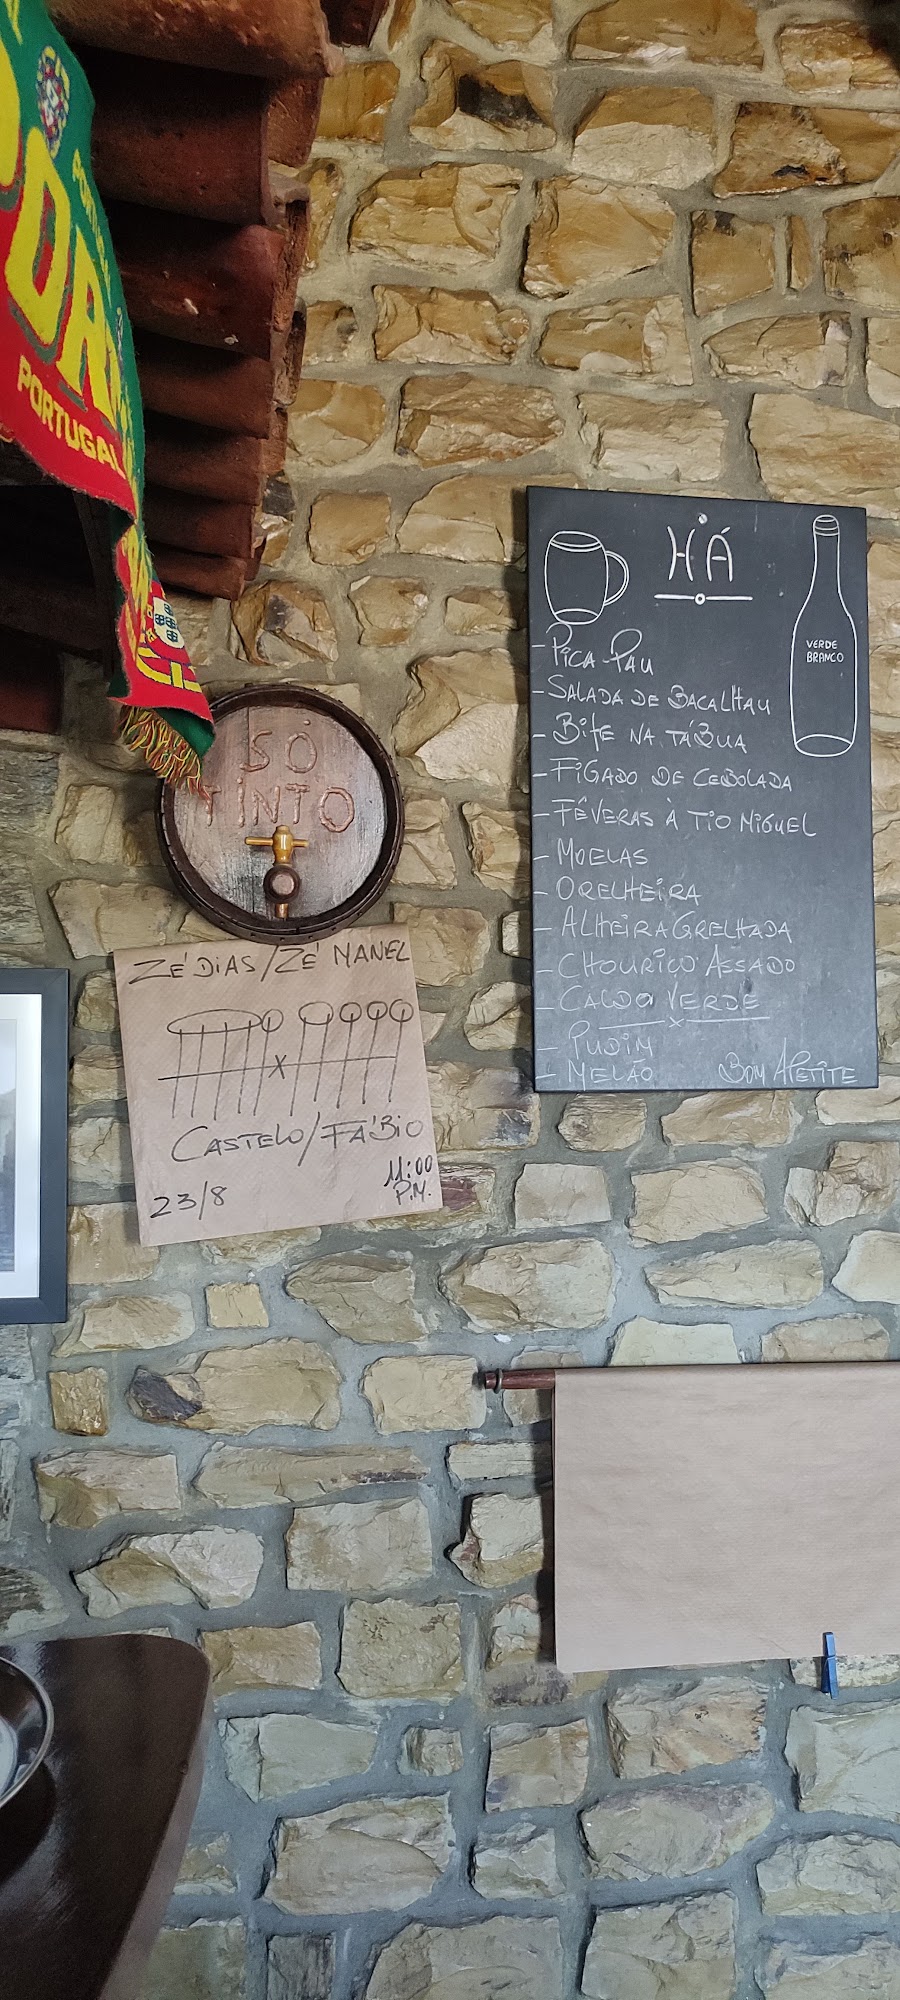 PORTUGAL
SÓ
TINTO
ZÉ DIAS/ZÉ MANEL
X
CASTELO/FÁBIO
23/8
11:00
P.M.
HÁ
VERDE
BRANCO
- PICA-PAU
- SALADA DE BACALHAU
- BIFE NA TÁBUA
- FÍGADO DE CEBOLADA
- FÊVERAS À TIO MIGUEL
- MOELAS
- ORELHEIRA
- ALHEIRA GRELHADA
- CHOURIÇO ASSADO
- CALDO VERDE
x
- PUDIM
- MELÃO
BOM APETITE